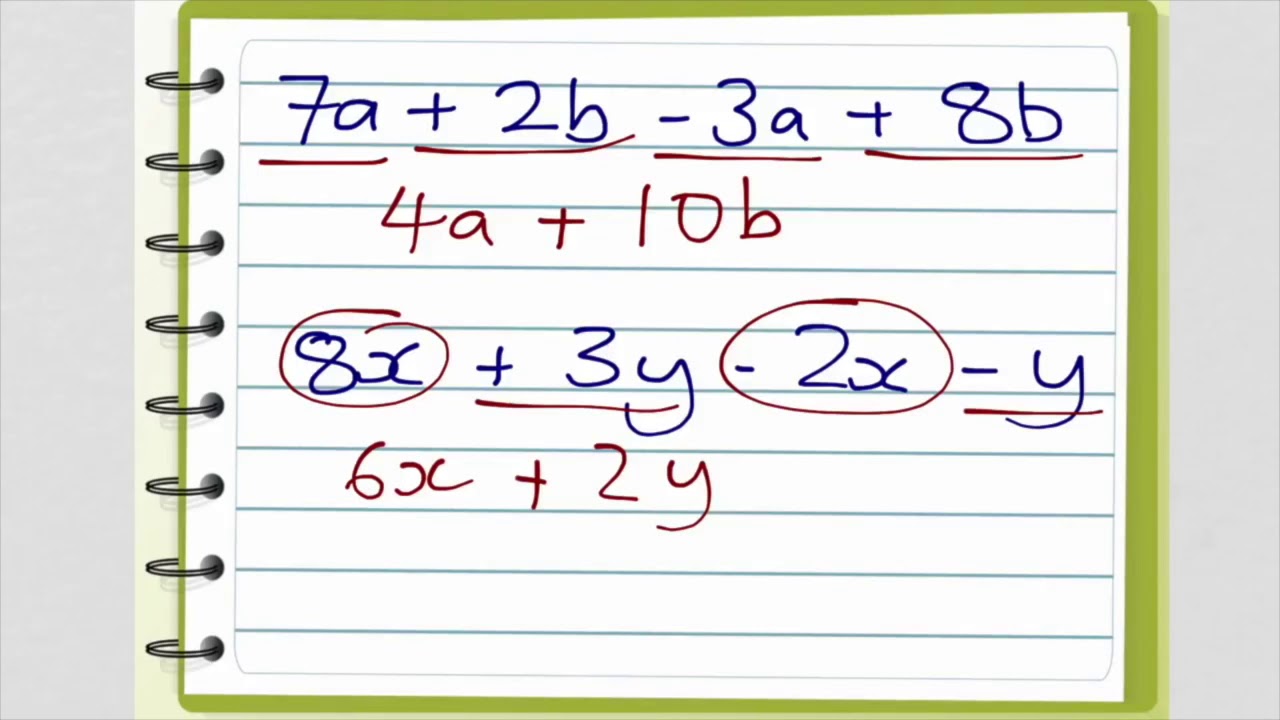 7a + 2b - 3a + 8b
4a + 10b
8x + 3y - 2x - y
6x + 2y